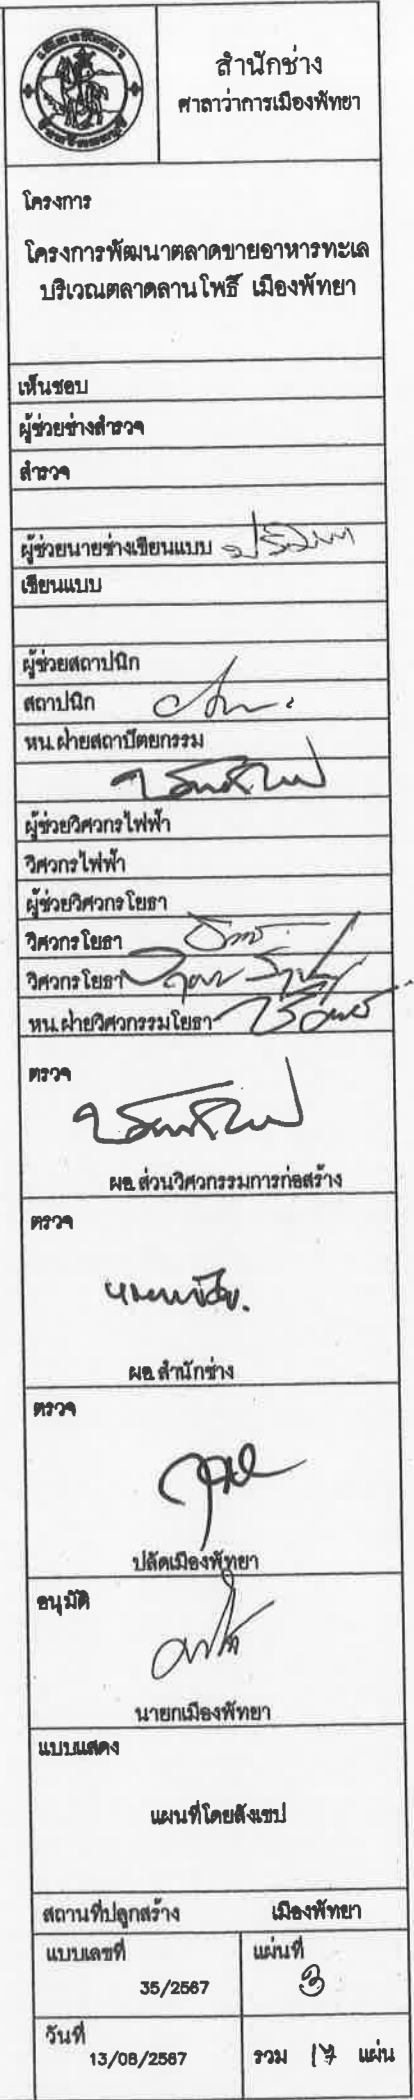 สำนักช่าง
ศาลาว่าการเมืองพัทยา
โครงการ
โครงการพัฒนาตลาดขายอาหารทะเล
บริเวณตลาดลานโพธิ์ เมืองพัทยา
เห็นชอบ
ผู้ช่วยช่างสำรวจ
สำรวจ
ผู้ช่วยนายช่างเขียนแบบ
เขียนแบบ
ผู้ช่วยสถาปนิก
สถาปนิก
หน.ฝ่ายสถาปัตยกรรม
ผู้ช่วยวิศวกรไฟฟ้า
วิศวกรไฟฟ้า
ผู้ช่วยวิศวกรโยธา
วิศวกรโยธา
วิศวกรโยธา
หน.ฝ่ายวิศวกรรมโยธา
ตรวจ
ผอ.ส่วนวิศวกรรมการก่อสร้าง
ตรวจ
ผอ.สำนักช่าง
ตรวจ
ปลัดเมืองพัทยา
อนุมัติ
นายกเมืองพัทยา
แบบแสดง
แผนที่โดยสังเขป
สถานที่ปลูกสร้าง เมืองพัทยา
แบบเลขที่ แผ่นที่
35/2567 3
วันที่
13/08/2567 รวม 17 แผ่น